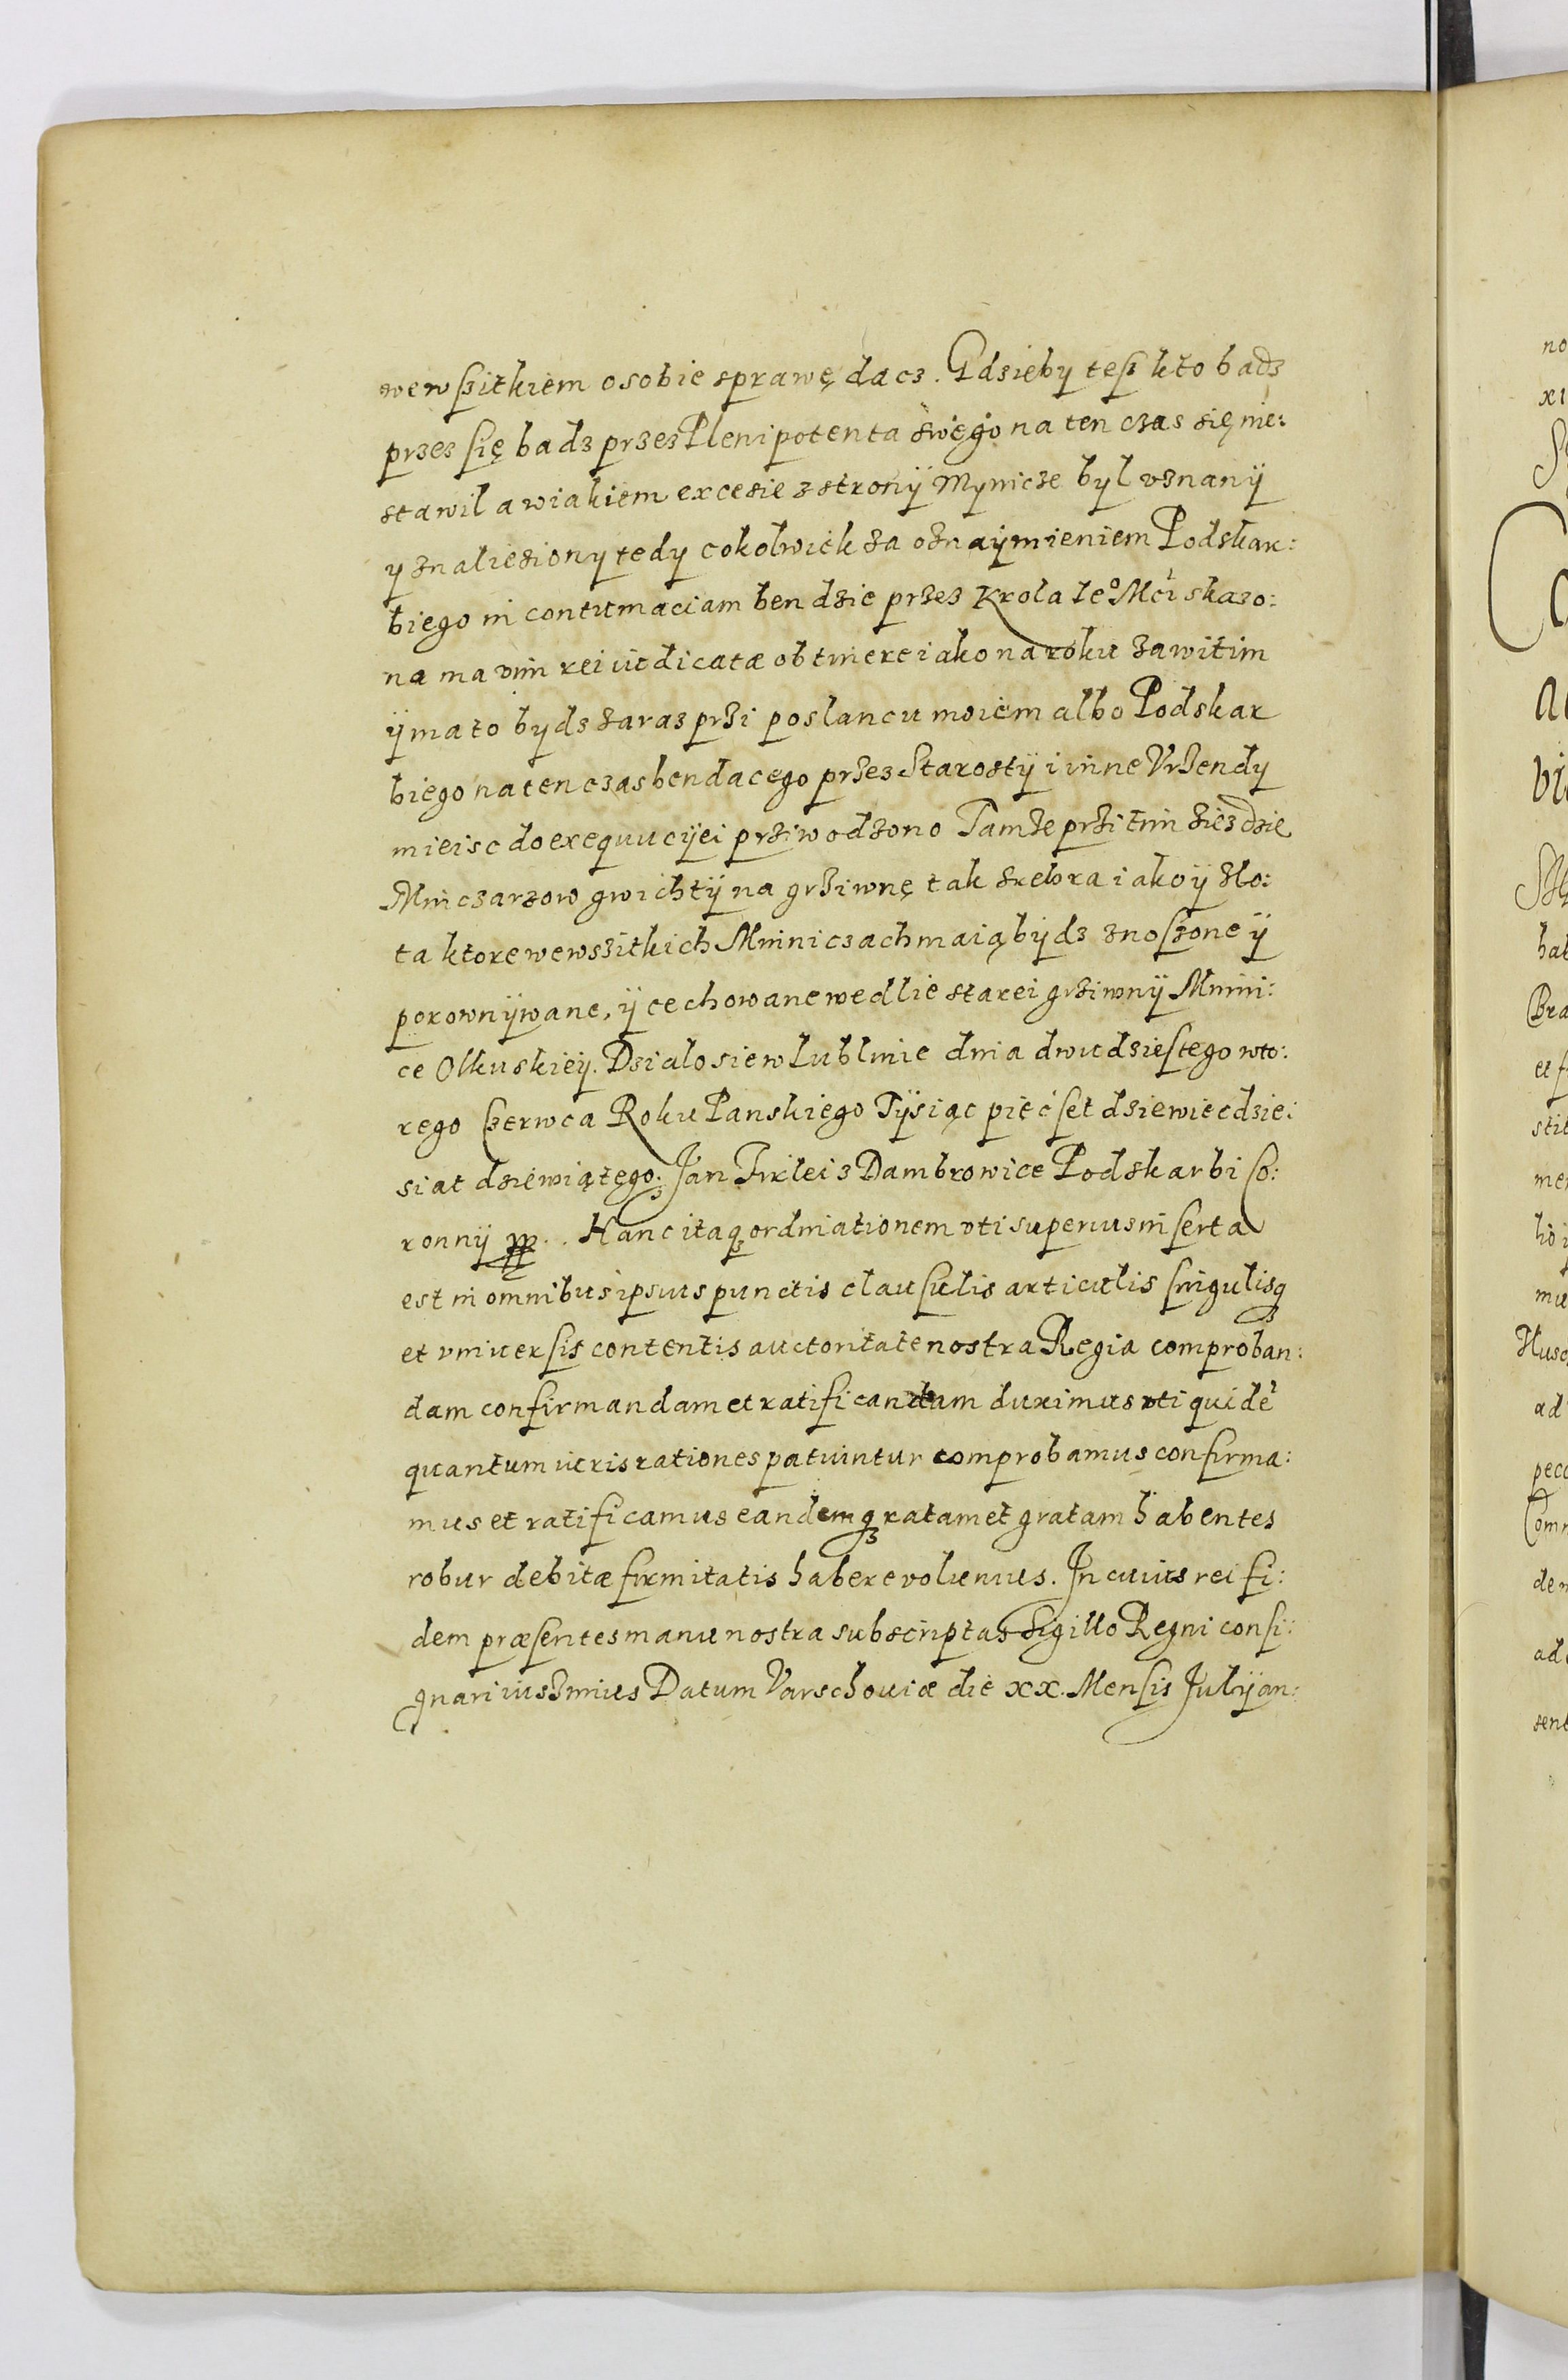 wewszitkiem o sobie sprawę dacz. Gdzieby tesz kto badz
przez się badz przez Plenipotenta swego na ten czas się nie:
stawil a w iakiem excesie z strony Mynicze byl uznany
y znalieziony tedy cokolwiek za oznaymieniem Podskar:
biego in contumaciam bendzie przez Krola Ieᵒ Mci skazo:
na ma vim rei iudicatæ obtinere iako na roku zawitim
ÿ ma to bydz zaraz przi poslancu moiem albo Podskar
biego na ten czas bendacego przez Starostÿ i inne Vrzendy
mieisc do exequucÿei prziwodzono Tamze przi tim ziezdzie
Minczarzow gwichtÿ na grziwnę tak srebra iako ÿ zło:
ta ktore wewsszitkich Minniczach maią bÿdz znoszone ÿ
porownÿwane, ÿ cechowane wedlie starei grziwnÿ Minni:
ce Olkuskieÿ. Dzialo sie w Lublinie dnia dwudziestego wto:
rego Czerwca Roku Panskiego Tÿsiąc piećset dziewiecdzie:
siat dziewiątego. Jan Firlei z Dambrowice Podskarbi Co:
ronnÿ pp. Hanc itaqꝫ ordinationem vti superius inserta
est in omnibus ipsius punctis clausulis articulis singulisqꝫ
et vniversis contentis auctoritate nostra Regia comproban:
dam confirmandam et ratificandam duximus vti quidē
quantum iuris rationes patiuntur comprobamus confirma:
mus et ratificamus eandemqꝫ ratam et gratam habentes
robur debitæ firmitatis habere volumus. In cuius rei fi:
dem præsentes manu nostra subscriptas Sigillo Regni consi:
gnari iussimus Datum Varschoviæ die XX. Mensis Julÿ an:
no
xi